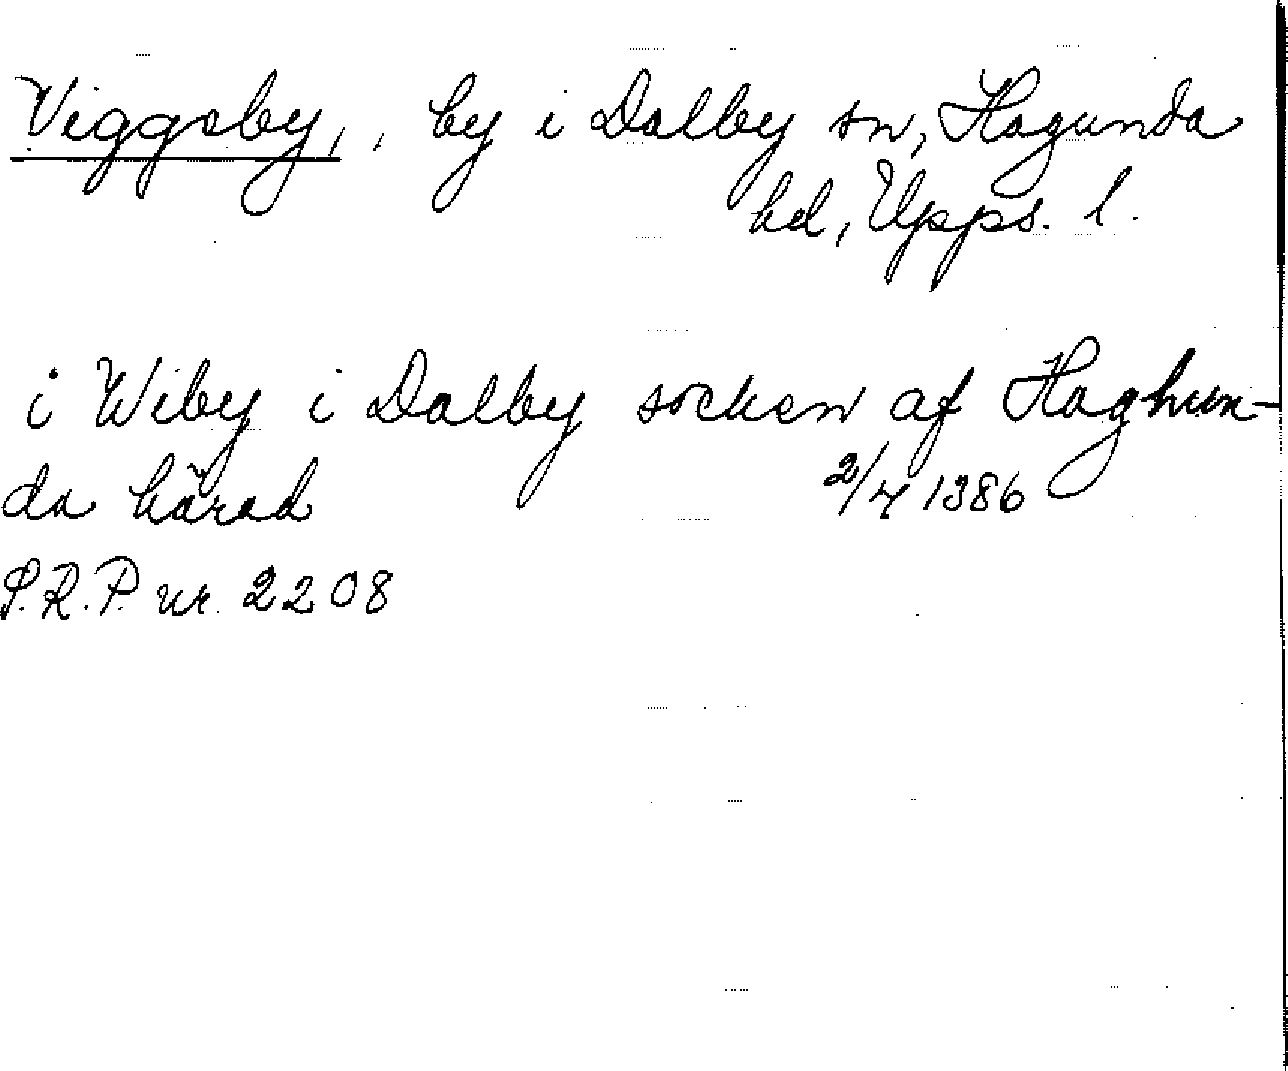 Viggsby, , by i Dalby sn, Hagunda
hd, Upps. l.
i Wiby i Dalby socken af Haghun-
da härad 2/4 1386
S.R.P. nr. 2208